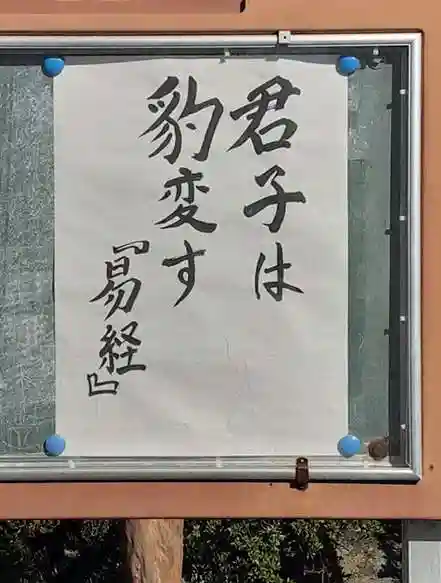 君子は
豹変す
『易経』